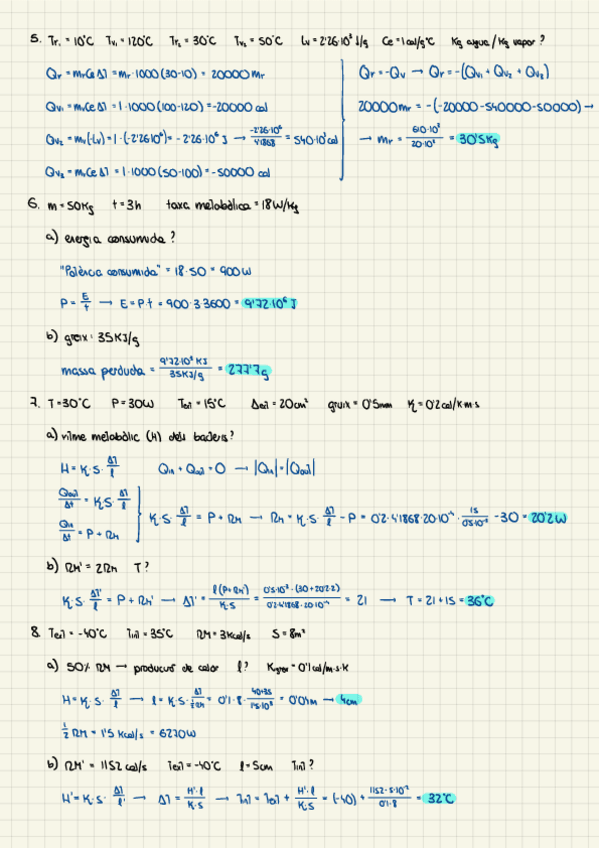 5. Tr₁ = 10°C Tv₁ = 120°C Tr₂ = 30°C Tv₂ = 50°C Lv = 2'26·10³ J/g Ce = 1 cal/g°C Kg aigua / Kg vapor?
Qr = mr Ce ΔT = mr · 1000 (30-10) = 20000 mr
Qv₁ = mv Ce ΔT = 1 · 1000 (100-120) = -20000 cal
Qv₂ = mv (-Lv) = 1 · (-2'26·10⁶) = -2'26·10⁶ J → -2'26·10⁶ / 4'1868 = 540·10³ cal
Qv₃ = mv Ce ΔT = 1 · 1000 (50-100) = -50000 cal
Qr = -Qv → Qr = -(Qv₁ + Qv₂ + Qv₃)
20000 mr = -(-20000 - 540000 - 50000) →
→ mr = 610·10³ / 20·10³ = 30'5 Kg
6. m = 50Kg t = 3h taxa metabòlica = 18 W/Kg
a) energia consumida?
"Potència consumida" = 18 · 50 = 900 W
P = E/t → E = P·t = 900 · 3·3600 = 9'72·10⁶ J
b) greix: 35 KJ/g
massa perduda = 9'72·10³ KJ / 35 KJ/g = 277'7 g
7. T = 30°C P = 30W Text = 15°C Δext = 20cm² gruix = 0'5mm K = 0'2 cal/K·m·s
a) ritme metabòlic (H) dels bacteris?
H = K·S· ΔT/l Qin + Qout = 0 → |Qin| = |Qout|
Qout/Δt = K·S· ΔT/l
Qin/Δt = P + RM
K·S· ΔT/l = P + RM → RM = K·S· ΔT/l - P = 0'2 · 4'1868 · 20·10⁻⁴ · 15 / 0'5·10⁻³ - 30 = 20'2 W
b) RM' = 2RM T?
K·S· ΔT'/l = P + RM' → ΔT' = l(P+RM') / K·S = 0'5·10⁻³ · (30+20'2·2) / 0'2·4'1868·20·10⁻⁴ = 21 → T = 21 + 15 = 36°C
8. Text = -40°C Tint = 35°C RM = 3Kcal/s S = 8m²
a) 50% RM → producció de calor l? Kgreix = 0'1 cal/m·s·K
H = K·S· ΔT/l → l = K·S· ΔT / ½RM = 0'1 · 8 · 40+35 / 1'5·10³ = 0'04m → 4cm
½ RM = 1'5 Kcal/s = 6270W
b) RM' = 1152 cal/s Text = -40°C l = 5cm Tint?
H' = K·S· ΔT/l' → ΔT = H'·l / K·S → Tint = Text + H'·l / K·S = (-40) + 1152 · 5·10⁻² / 0'1·8 = 32°C